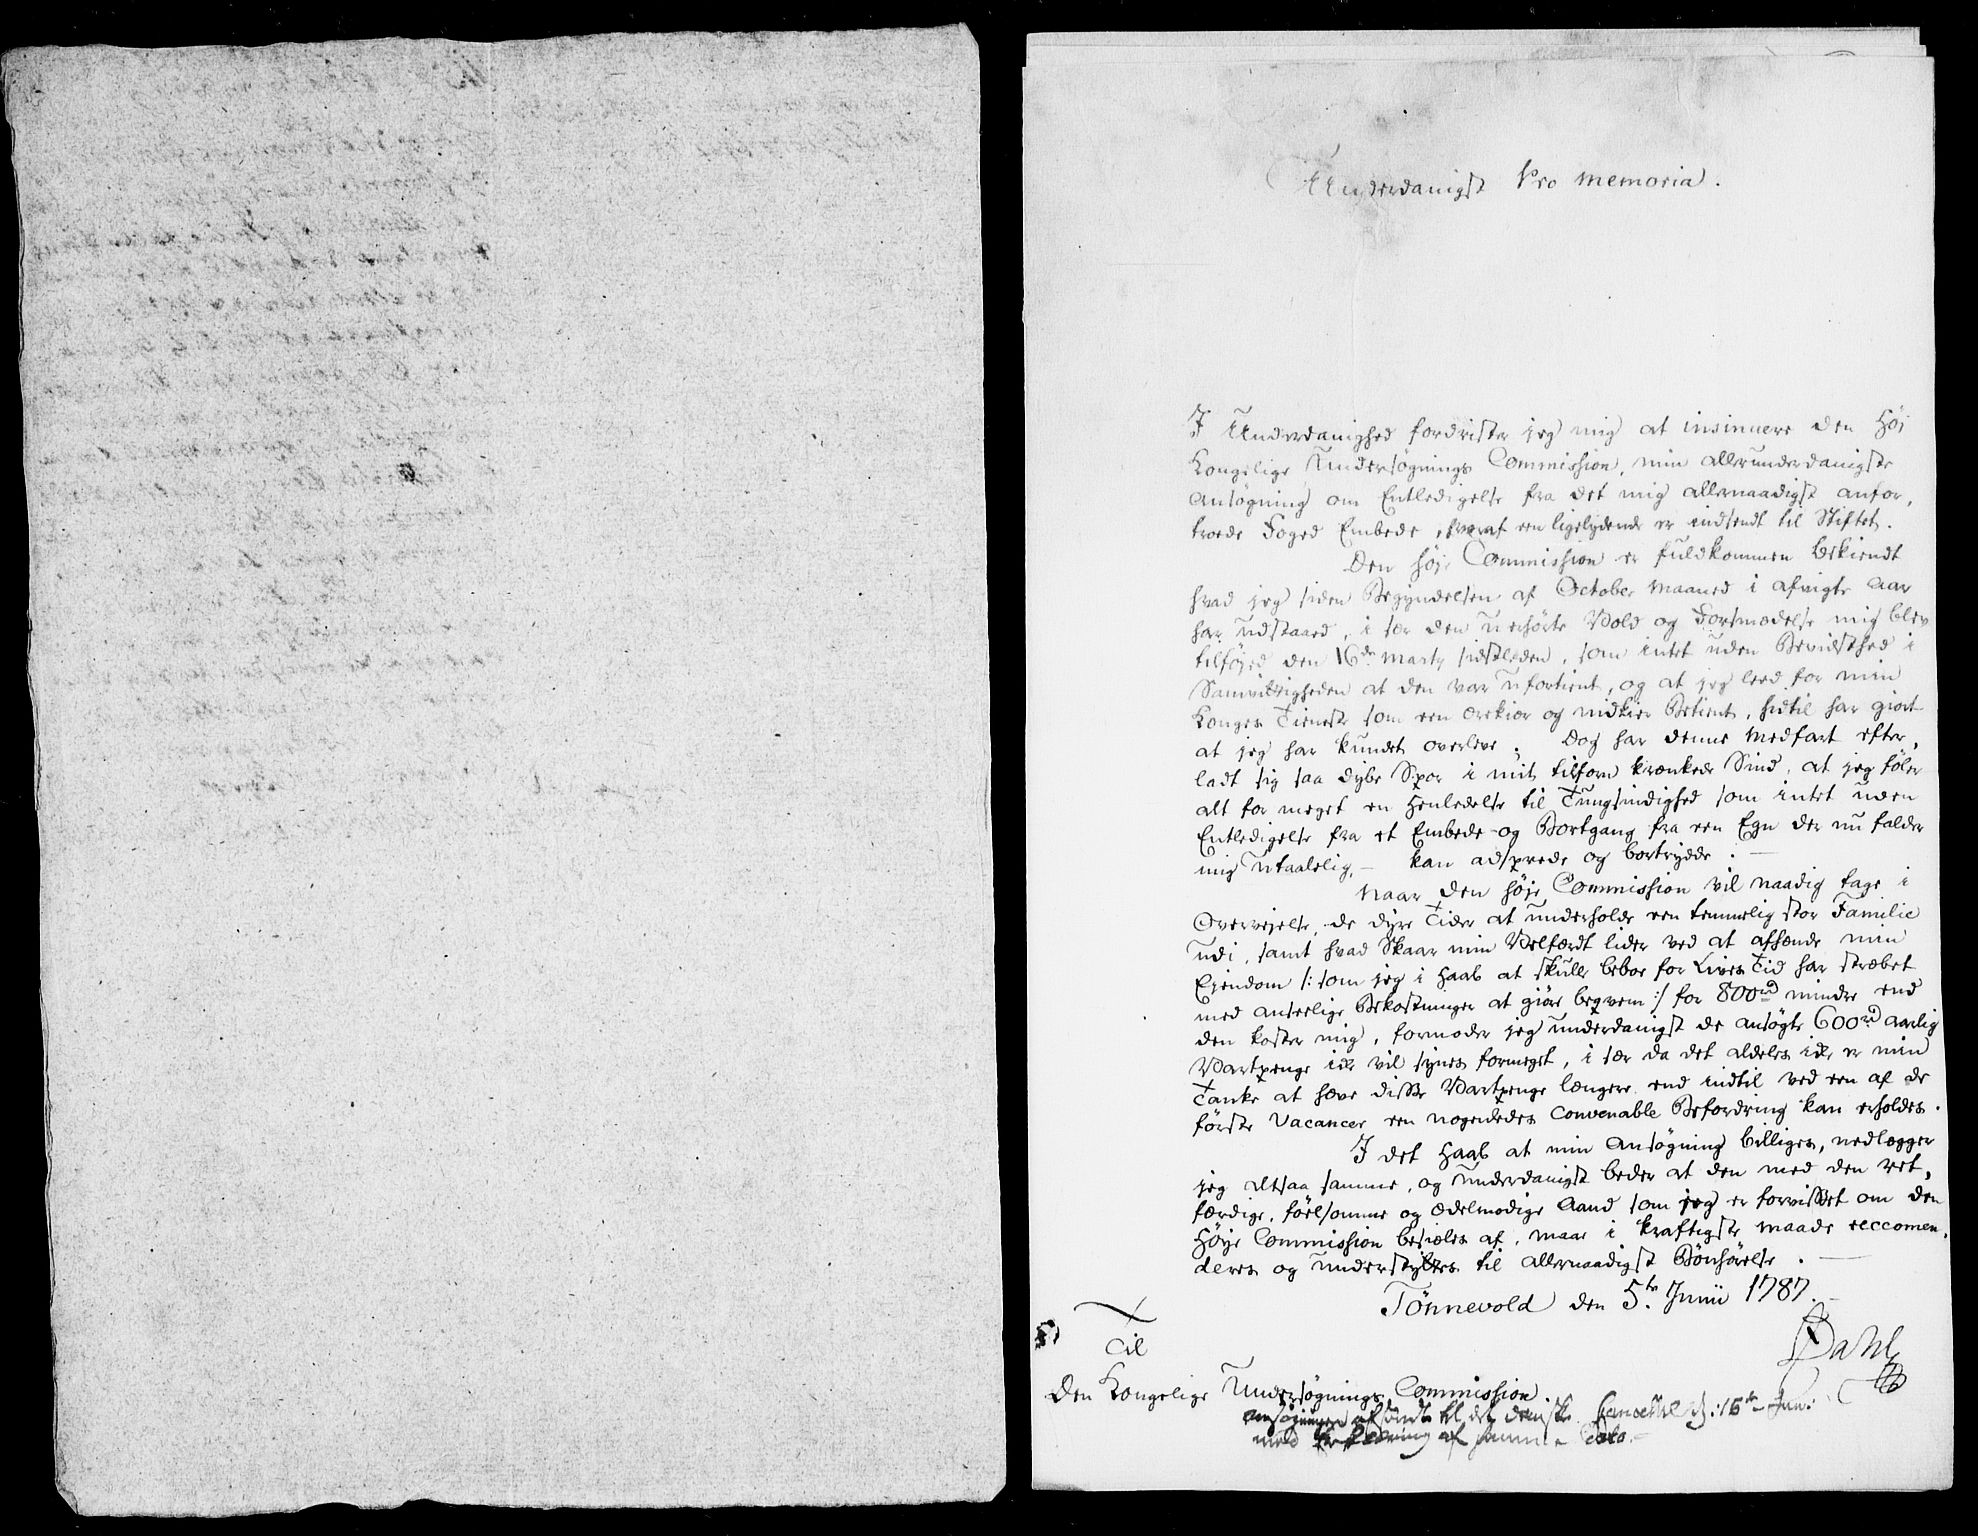 Underdanigst Pro memoria.
I Underdanighed fordrister jeg mig at insinuere den Høj
Kongelige Undersøgnings Commission, min allerunderdanigste
Ansøgning om Entledigelse fra det mig allernaadigst anfor,
troede Foged Embede, hvoraf een ligelydende er indsendt til Stiftet.
Den høje Commission er fuldkommen bekiendt
hvad jeg siden Begyndelsen af October Maaned i afvigte Aar
har udstaaed, i sær den uerhørte Vold og Forsmædelse mig blev
tilføjed den 16de Marty sidstleden, som intet uden Bevidsthed i
Samvittigheden at den var ufortient, og at jeg leed for min
Konges Tieneste som een ærekiær og nidkier Betient, hidtil har giort
at jeg har kundet overleve. Dog har denne Medfart efter,
ladt sig saa dybe Spor i mit tilforn krænkede Sind, at jeg føler
alt for meget en Henledelse til Tungsindighed som intet uden
Entledigelse fra et Embede og Bortgang fra een Egn der nu falder
mig utaalelig, - kan adsprede og bortrydde. -
Naar den høje Commission vil naadig tage i
Overvejelse, de dyre Tider at underholde een temmelig stor Familie
udi, samt hvad Skaar min Velfærdt lider ved at afhænde min
Ejendom /: som jeg i Haab at skulle beboe for Lives Tid har stræbet
med anseelige Bekostninger at giøre beqvem :/ for 800rd mindre end
den koster mig, formoder jeg underdanigst de ansøgte 600rd aarlig
Vartpenge ikke vil synes formeget, i sær da det aldeles ikke er min
Tanke at hæve disse Vartpenge længere end indtil ved een af de
første Vacancer een nogenledes convenable Befordring kan erholdes.
I det Haab at min Ansøgning billiges, nedlægger
jeg altsaa samme, og underdanigst beder at den med den ret,
færdige, føelsomme og ædelmodige Aand som jeg er forvisset om den
Høje Commission besiæles af, maae i kraftigste Maade reccomen,
deres og understyttes til allernaadigst Bønhørelse. -
Tønnevold den 5te Junii 1787.
Dahl
Til
Den Kongelige Undersøgnings Commission.
Ansøgningen afsendt til det danske Cancellie d: 16te Juni
med Erklæring af samme Dato.